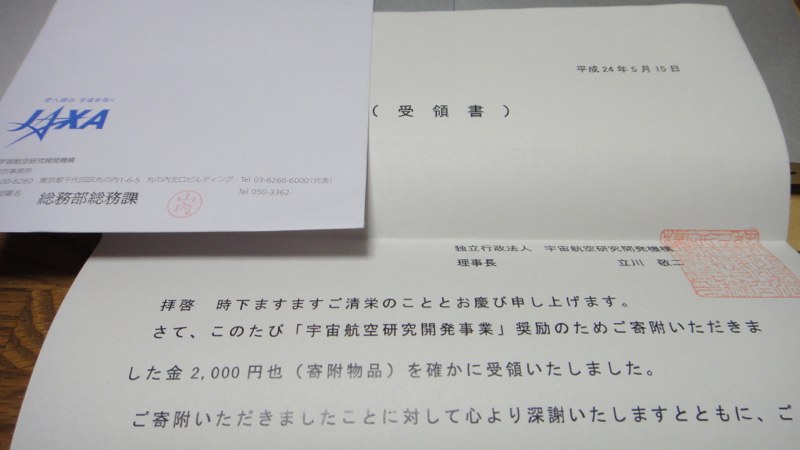 空へ挑み、宇宙を拓く
JAXA
宇宙航空研究開発機構
京事務所
00-8260 東京都千代田区丸の内1-6-5 丸の内北口ビルディング Tel 03-6266-6000(代表)
部署名 総務部総務課 Tel 050-3362-
山内
平成24年5月15日
(受領書)
独立行政法人 宇宙航空研究開発機構
理事長 立川 敬二
拝啓 時下ますますご清栄のこととお慶び申し上げます。
さて、このたび「宇宙航空研究開発事業」奨励のためご寄附いただきま
した金2,000円也(寄附物品)を確かに受領いたしました。
ご寄附いただきましたことに対して心より深謝いたしますとともに、ご